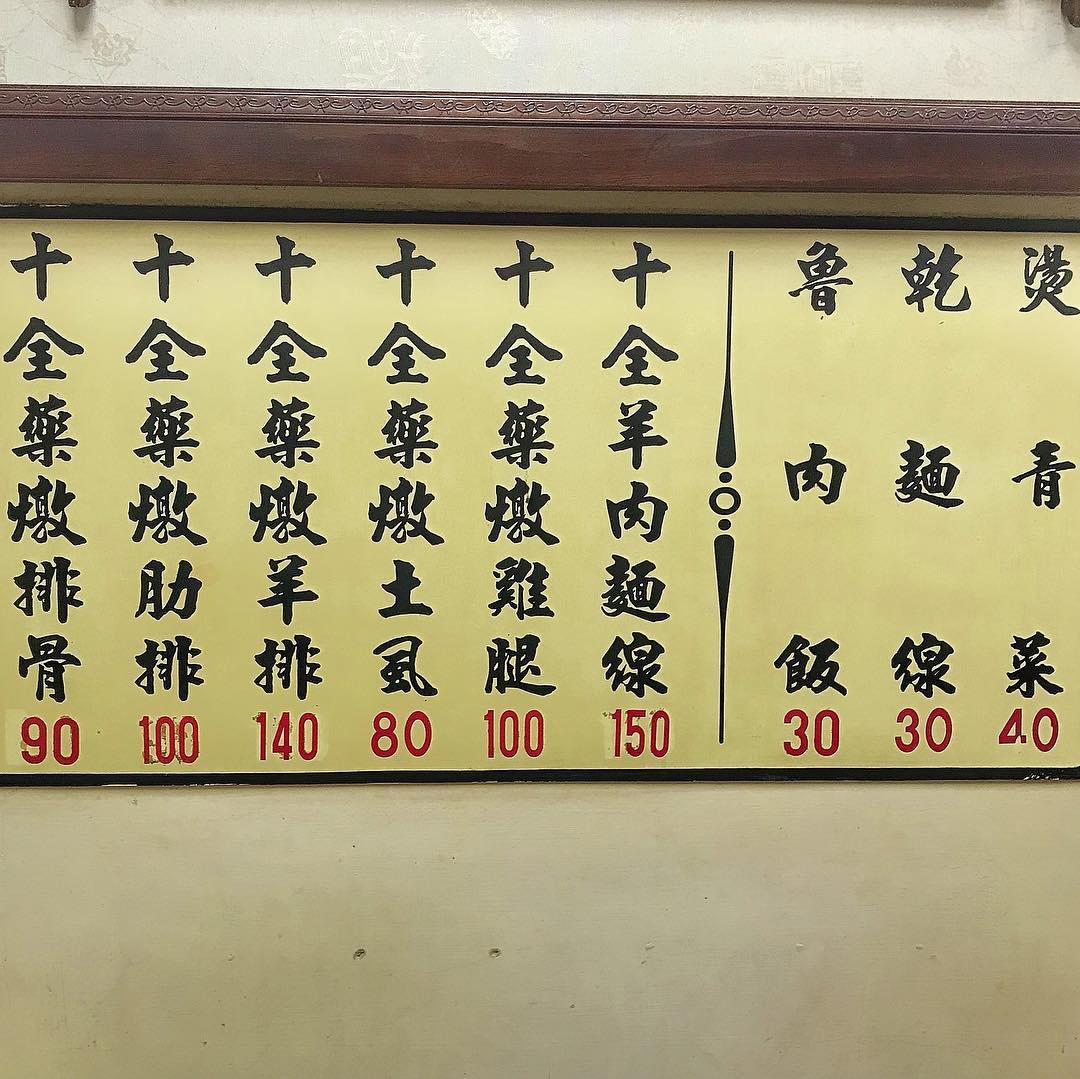 十全藥燉排骨 90
十全藥燉肋排 100
十全藥燉羊排 140
十全藥燉土虱 80
十全藥燉雞腿 100
十全羊肉麵線 150
魯肉飯 30
乾麵線 30
燙青菜 40